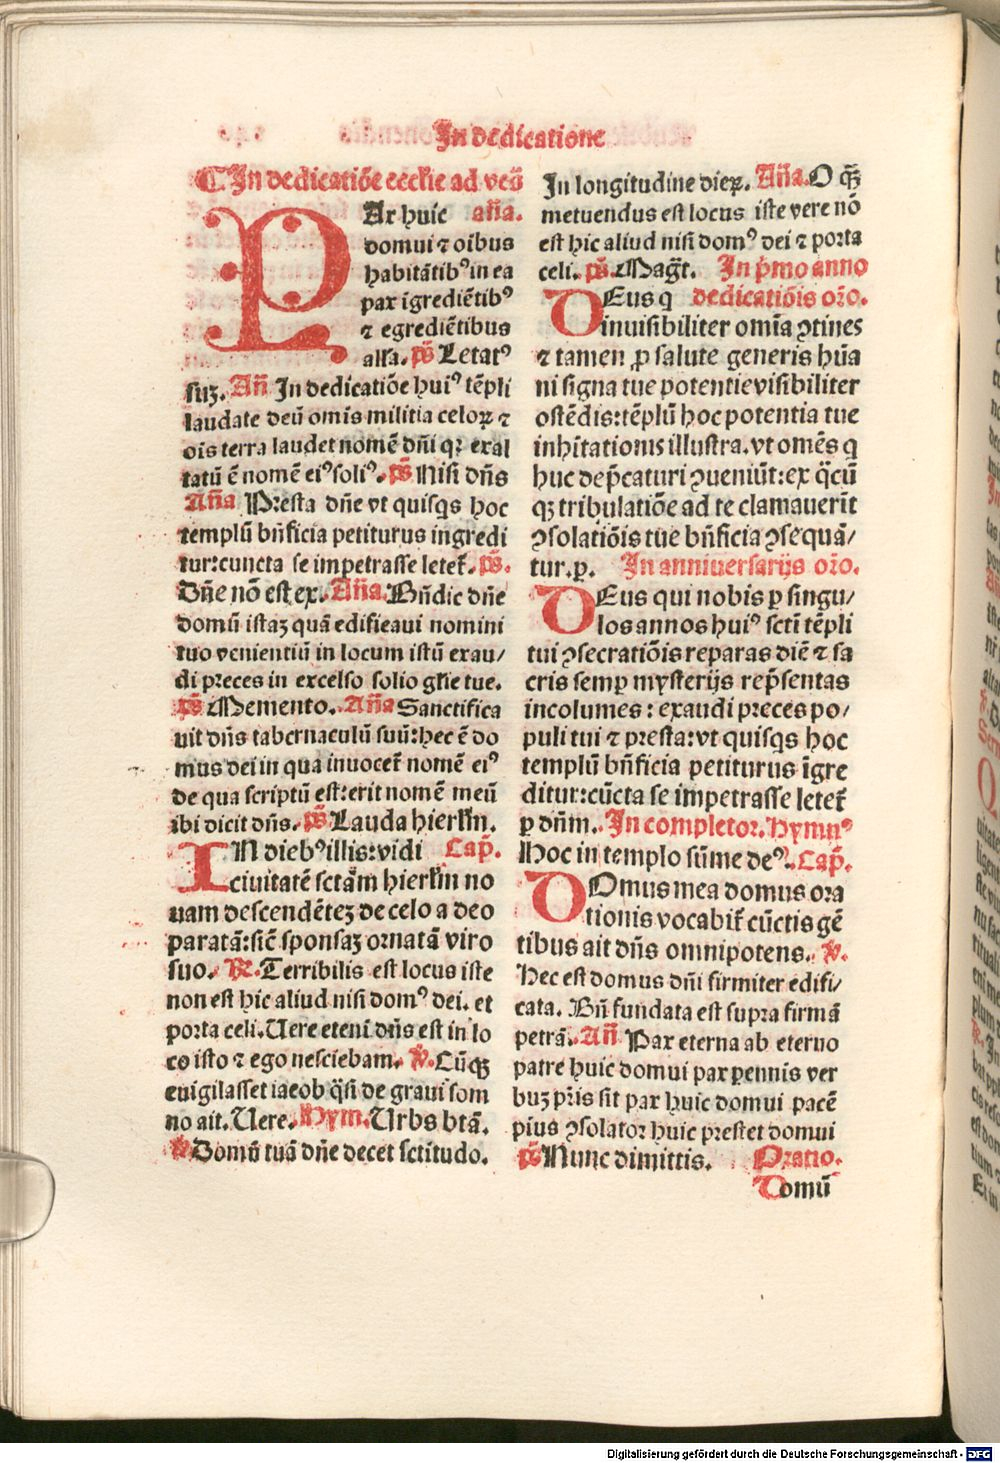 In dedicatione
In dedicatiōe ecclie ad vesꝑ
PAr huic añа.
domui ⁊ oibus
habitātibꝰ in ea
pax igrediētibꝰ
⁊ egrediētibus
alla. ps̄ Letatꝰ
suꝫ. Añ In dedicatiōe huiꝰ tēpli
laudate deū omis militia celoꝝ ⁊
ois terra laudet nomē dn̄i qꝛ exal
tatū ē nomē eiꝰ soliꝰ. ps̄ Nisi dn̄s
Añа Presta dn̄e vt quisqs hoc
templū bn̄ficia petiturus ingredi
tur: cuncta se impetrasse letet̄. ps̄.
Dn̄e nō est ex. Añа. Bn̄dic dn̄e
domū istaꝫ quā edificaui nomini
tuo venientiū in locum istū exau/
di preces in excelso solio glie tue.
ps̄ Memento. Añа Sanctifica
uit dn̄s tabernaculū suū: hec ē do
mus dei in qua inuocet̄ nomē eiꝰ
de qua scriptū est: erit nomē meū
ibi dicit dn̄s. ps̄ Lauda hierl̄m.
IN diebꝰ illis: vidi Cap̄.
ciuitatē sctām hierl̄m no
uam descendēteꝫ de celo a deo
paratā: sic̄ sponsaꝫ ornatā viro
suo. ℟. Terribilis est locus iste
non est hic aliud nisi domꝰ dei. et
porta celi. Uere eteni dn̄s est in lo
co isto ⁊ ego nesciebam. ℣. Cūqꝫ
euigilasset iacob q̄si de graui som
no ait. Uere. Hym. Urbs btā.
℣ Domū tuā dn̄e decet sctitudo.
In longitudine dieꝝ. Añа. O q̄ꝫ
metuendus est locus iste vere nō
est hic aliud nisi domꝰ dei ⁊ porta
celi. ps̄. Mag̅t. In p̄mo anno
DEus q dedicatiōis oro.
inuisibiliter omīa ꝯtines
⁊ tamen ꝓ salute generis hūa
ni signa tue potentie visibiliter
ostēdis: tēplū hoc potentia tue
inhītationis illustra. vt omēs q
huc dep̄caturi ꝯueniūt: ex q̄cū
qꝫ tribulatiōe ad te clamauerīt
ꝯsolatiōis tue bn̄ficia ꝯsequā/
tur. ꝑ. In anniuersarijs oro.
DEus qui nobis ꝑ singu/
los annos huiꝰ scti tēpli
tui ꝯsecratiōis reparas diē ⁊ sa
cris semꝑ mysterijs rep̄sentas
incolumes: exaudi preces po/
puli tui ⁊ presta: vt quisqs hoc
templū bn̄ficia petiturus īgre
ditur: cūcta se impetrasse letet̄
ꝑ dn̄m. In completor. Hymnꝰ
Hoc in templo sūme deꝰ. Cap̄.
DOmus mea domus ora
tionis vocabit̄ cūctis gē
tibus ait dn̄s omnipotens. ℣.
Hec est domus dn̄i firmiter edifi/
cata. Bn̄ fundata est supra firmā
petrā. Añ Pax eterna ab eterno
patre huic domui pax ꝑennis ver
buꝫ pr̄is sit pax huic domui pacē
pius ꝯsolator huic prestet domui
ps̄ Nunc dimittis. Oratio.
Domū